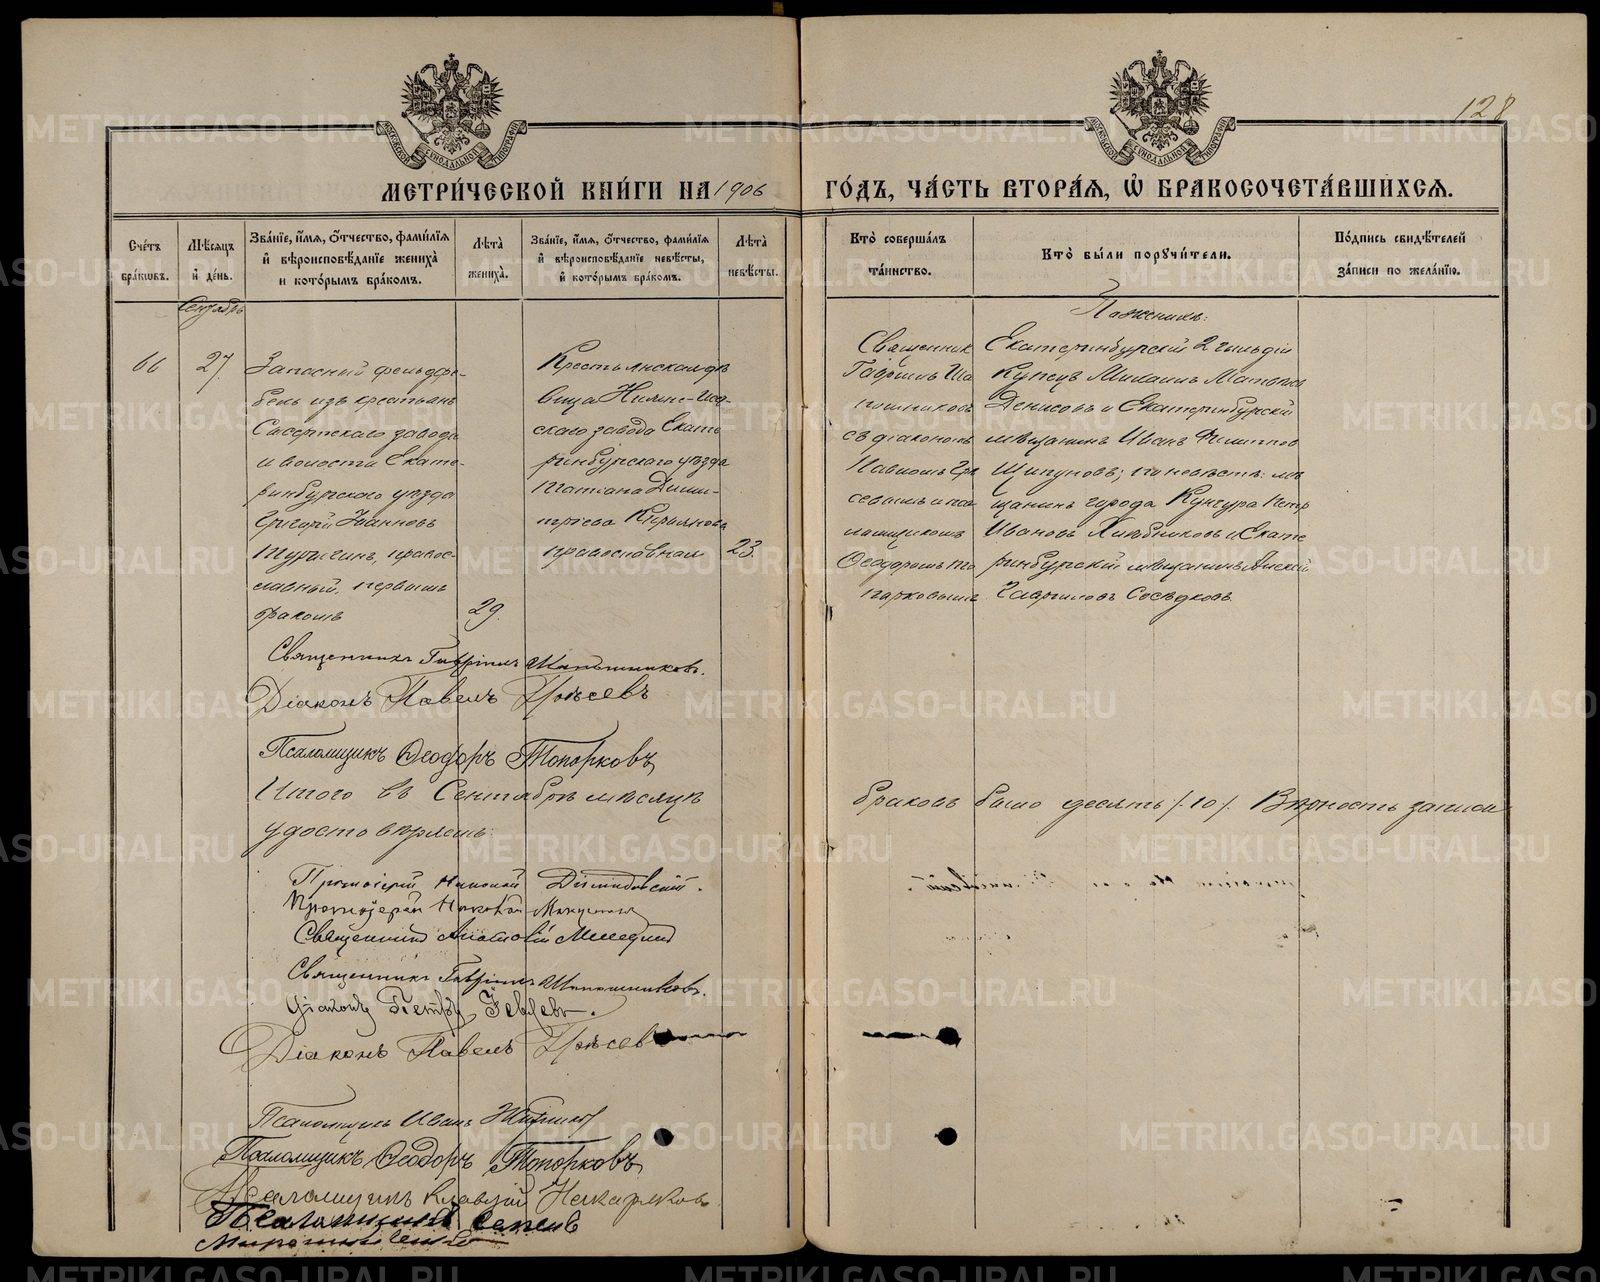 128
МОСКОВСКОЙ СѴНОДАЛЬНОЙ ТИПОГРАФІИ
МОСКОВСКОЙ СѴНОДАЛЬНОЙ ТИПОГРАФІИ
МЕТРИ́ЧЕСКОЙ КНИ́ГИ НА 1906 ГО́ДЪ, ЧА́СТЬ ВТОРА́Я, Ѡ БРАКОСОЧЕТА́ВШИХСЯ.
Сче́тъ бра́кѡвъ.
Мѣ́сяцъ и́ де́нь.
Зва́нїе, и́мя, о́тчество, фами́лїя и́ вѣроисповѣ́данїе жениха̀ и кото́рымъ бра́комъ.
Лѣ́та̀ жениха̀.
Зва́нїе, и́мя, о́тчество, фами́лїя и́ вѣроисповѣ́данїе невѣ́сты, и́ кото́рымъ бра́комъ.
Лѣ́та̀ невѣ́сты.
Кто̀ соверша́лъ та́инство.
Кто̀ бы́ли поручи́тели.
По́дпись свидѣ́телей за́писи по жела́нїю.
Сентябрь
66
27.
Запасный фельдфе-
бель изъ крестьянъ
Сысертскаго завода
и волости Екате-
ринбургскаго уѣзда
Григорій Іоанновъ
православный, первымъ
бракомъ
29.
Крестьянская дѣ
вица Нижне-Исе-
скаго завода Екате
ринбургскаго уѣзда
Татіана Дими-
тріева Кирьянова
православная
23.
Священникъ
Гавріилъ Ша
пошниковъ
съ діакономъ
Павломъ
и пса
ломщикомъ
Ѳеодоромъ То
порковымъ
По женихѣ:
Екатеринбургскій 2 гильдіи
Купецъ Михаилъ
Денисовъ и Екатеринбургскій
мѣщанинъ Иванъ Филиппов
Щипуновъ; по невѣстѣ: мѣ
щанинъ города Кунгура Петр
Ивановъ Хлѣбниковъ и Екате
ринбургскій мѣщанинъ Алексѣй
Гавриловъ Сосѣдковъ.
Священникъ Гавріилъ Шапошниковъ.
Діаконъ Павелъ
Псаломщикъ Ѳеодоръ Топорковъ
Итого въ Сентябрѣ мѣсяцѣ браковъ было десять /10/. Вѣрность записи
удостовѣряемъ:
Протоіерей Николай
Протоіерей Николай
Священникъ Анатолій
Священникъ Гавріилъ Шапошниковъ.
Діаконъ Петръ
Діаконъ Павелъ
Псаломщикъ Иванъ
Псаломщикъ Ѳеодоръ Топорковъ
Псаломщикъ Клавдій
Псаломщикъ
METRIKI.GASO-URAL.RU